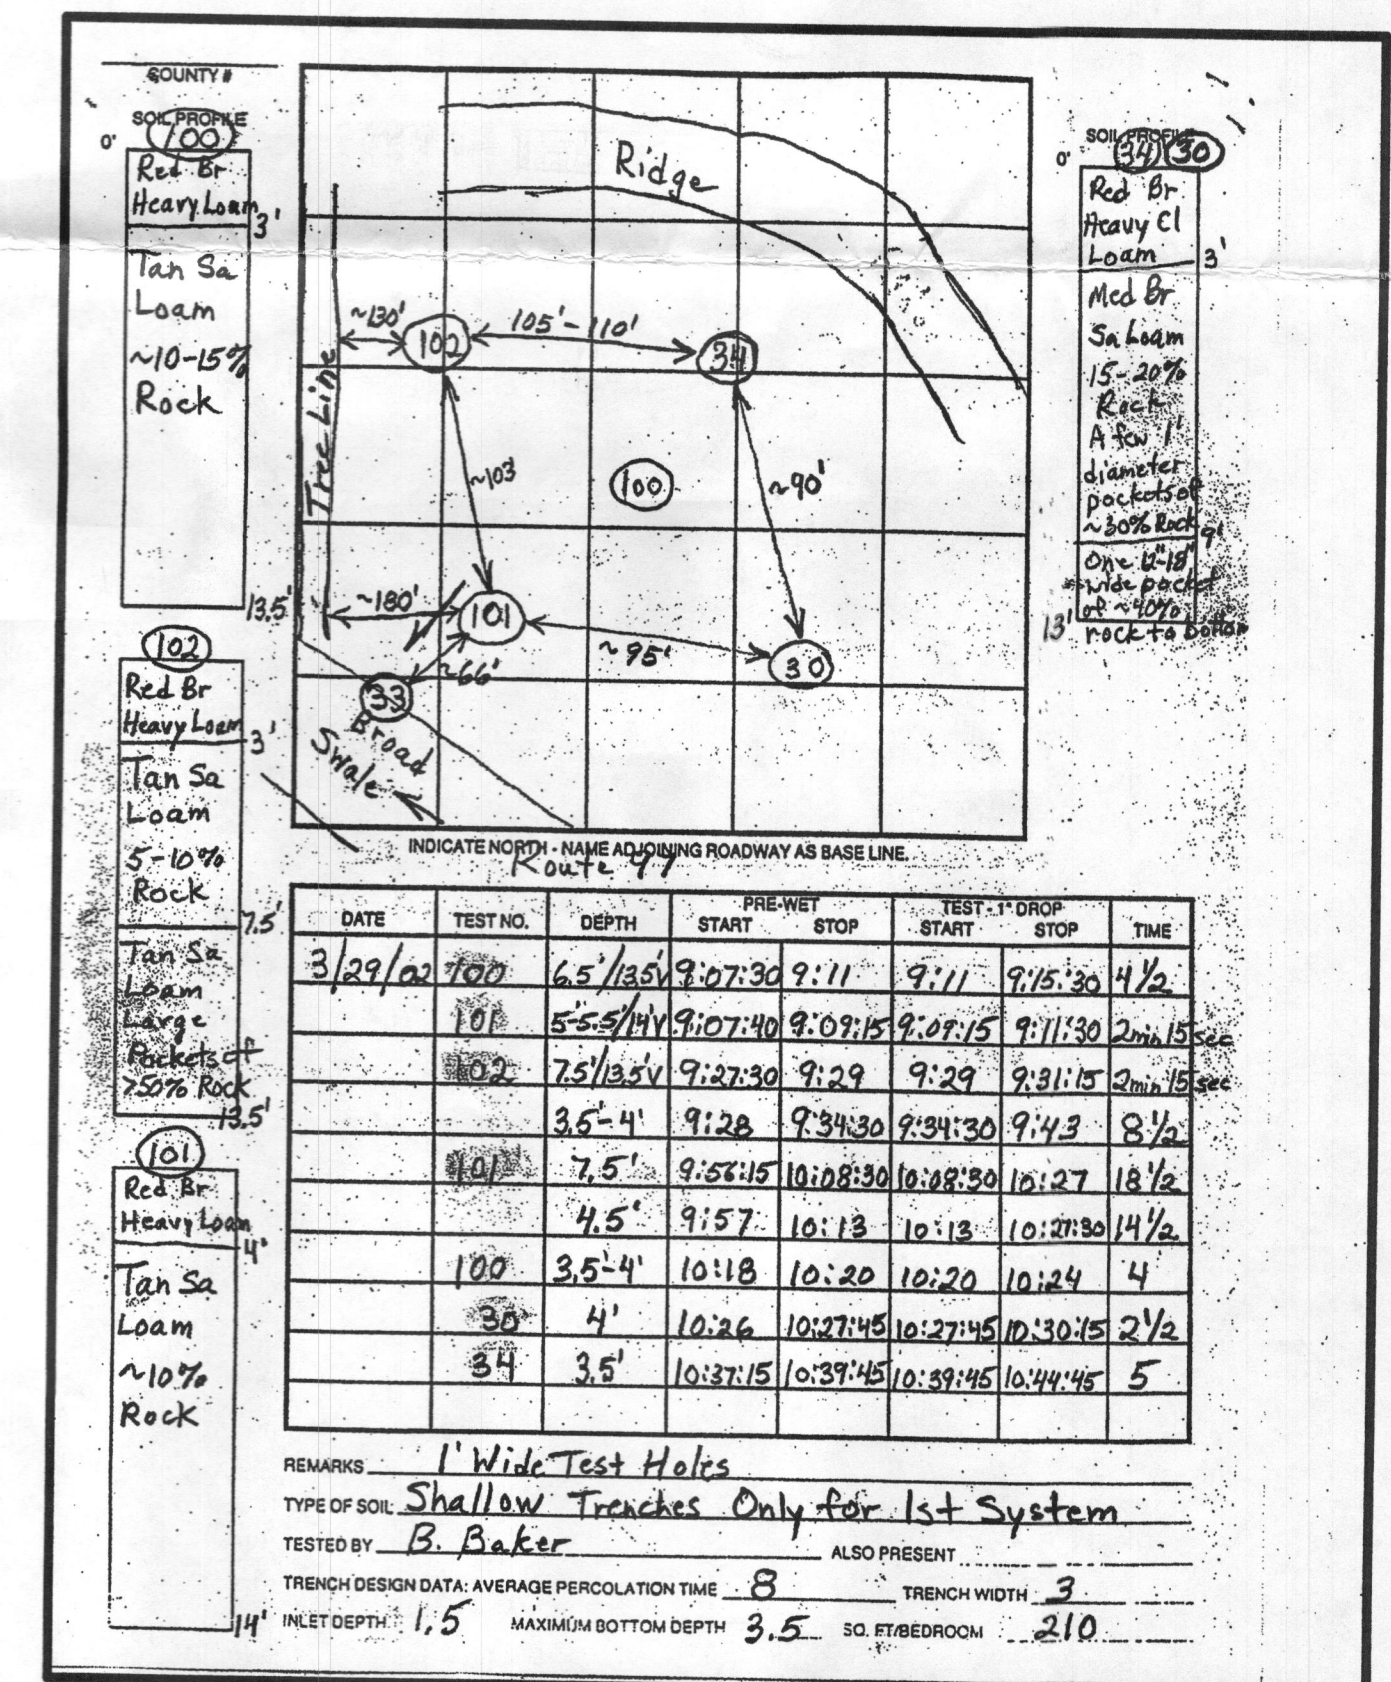 COUNTY #
SOIL PROFILE
100
0'
Red Br
Heavy Loam
3'
Tan Sa
Loam
~10-15%
Rock
13.5'
102
Red Br
Heavy Loam
3'
Tan Sa
Loam
5-10%
Rock
7.5'
Tan Sa
Loam
Large
Pockets of
>50% Rock
13.5'
101
Red Br
Heavy Loam
4'
Tan Sa
Loam
~10%
Rock
14'
Ridge
~130'
102
105'-110'
34
Tree Line
~103'
100
~90'
~180'
101
~95'
30
~66'
33
Broad
Swale
SOIL PROFILE
34 30
0'
Red Br
Heavy Cl
Loam
3'
Med Br
Sa Loam
15-20%
Rock
A few 1'
diameter
pockets of
~30% Rock
9'
One 12"-18"
wide pocket
of ~40%
rock to bottom
13'
INDICATE NORTH - NAME ADJOINING ROADWAY AS BASE LINE.
Route 97
DATE TEST NO. DEPTH PRE-WET START STOP TEST - 1" DROP START STOP TIME
3/29/02 100 6.5'/13.5'V 9:07:30 9:11 9:11 9:15:30 4 1/2
101 5'-5.5'/14'V 9:07:40 9:09:15 9:09:15 9:11:30 2min 15 sec
102 7.5'/13.5'V 9:27:30 9:29 9:29 9:31:15 2min 15 sec
3.5'-4' 9:28 9:34:30 9:34:30 9:43 8 1/2
101 7.5' 9:56:15 10:08:30 10:08:30 10:27 18 1/2
4.5' 9:57 10:13 10:13 10:27:30 14 1/2
100 3.5'-4' 10:18 10:20 10:20 10:24 4
30 4' 10:26 10:27:45 10:27:45 10:30:15 2 1/2
34 3.5' 10:37:15 10:39:45 10:39:45 10:44:45 5
REMARKS 1' Wide Test Holes
TYPE OF SOIL Shallow Trenches Only for 1st System
TESTED BY B. Baker ALSO PRESENT
TRENCH DESIGN DATA: AVERAGE PERCOLATION TIME 8 TRENCH WIDTH 3
INLET DEPTH 1.5 MAXIMUM BOTTOM DEPTH 3.5 SQ. FT/BEDROOM 210